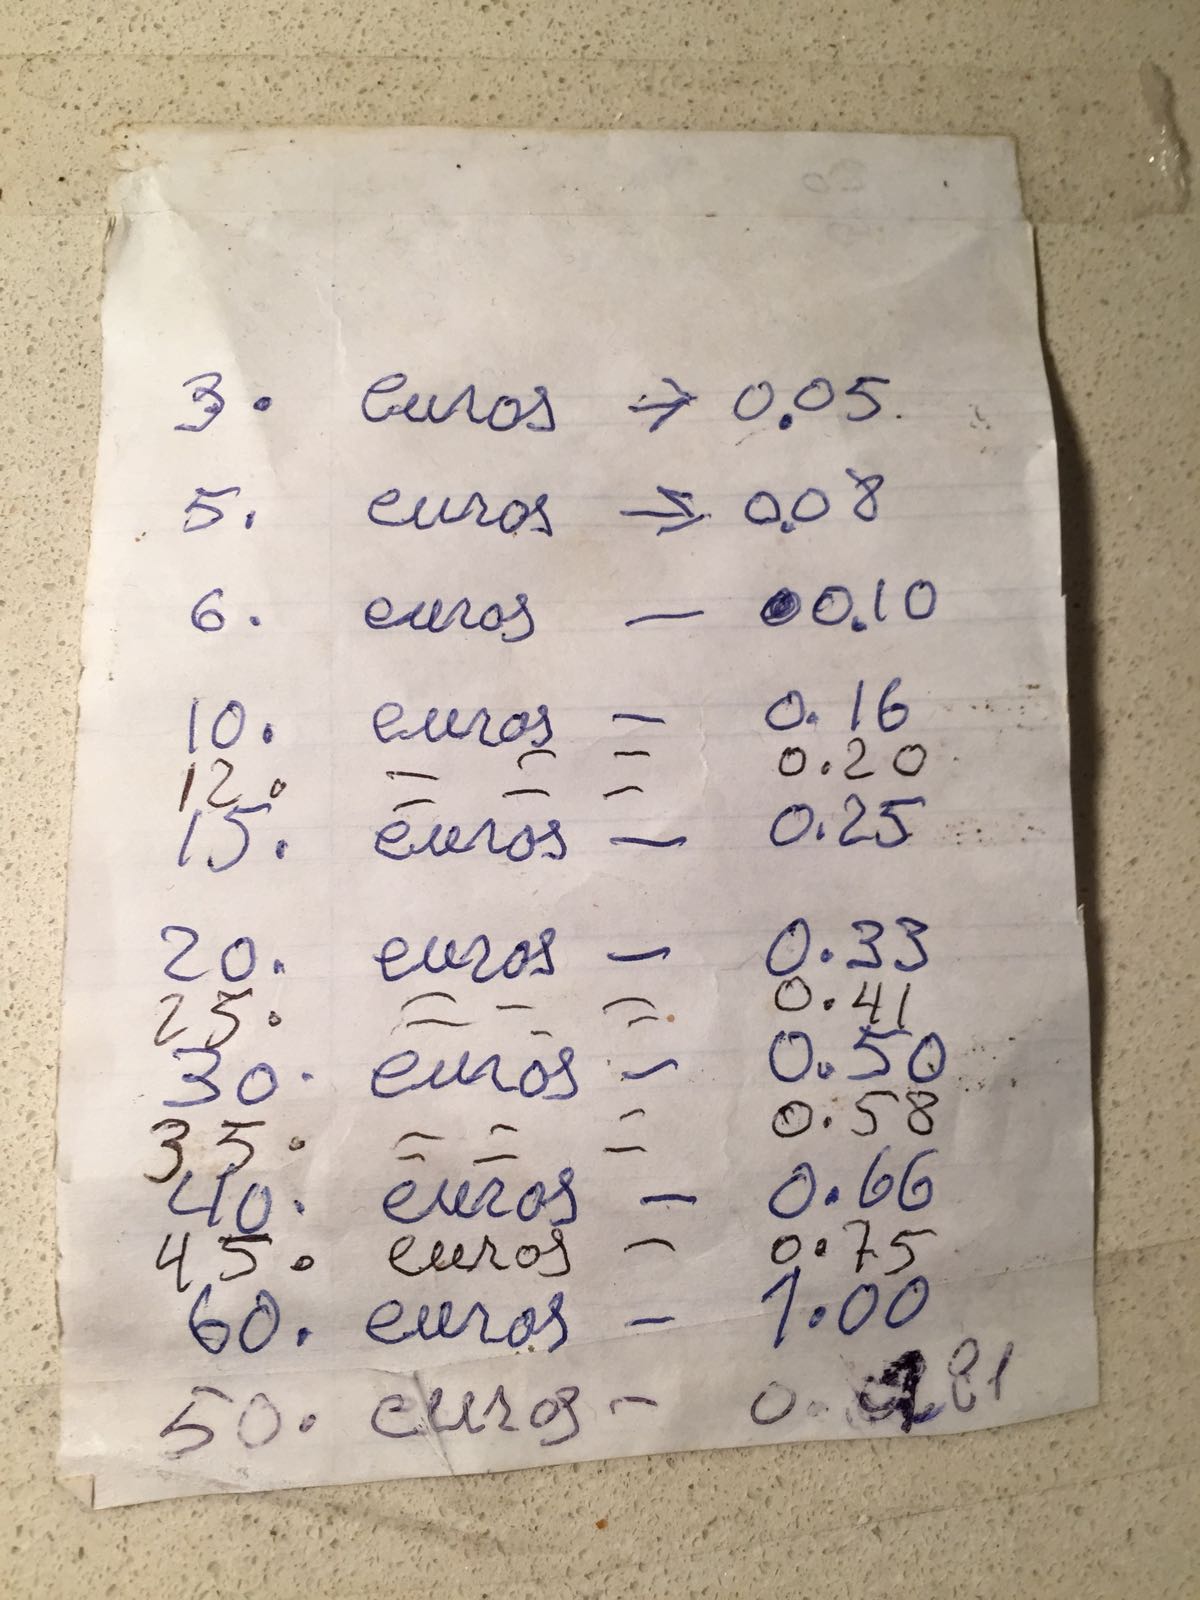 3. euros → 0.05.
5. euros → 0.08
6. euros — 0.10
10. euros — 0.16
12. — = = 0.20
15. euros — 0.25
20. euros — 0.33
25. = - = 0.41
30. euros — 0.50
35. = = = 0.58
40. euros — 0.66
45. euros — 0.75
60. euros — 1.00
50. euros - 0. 81